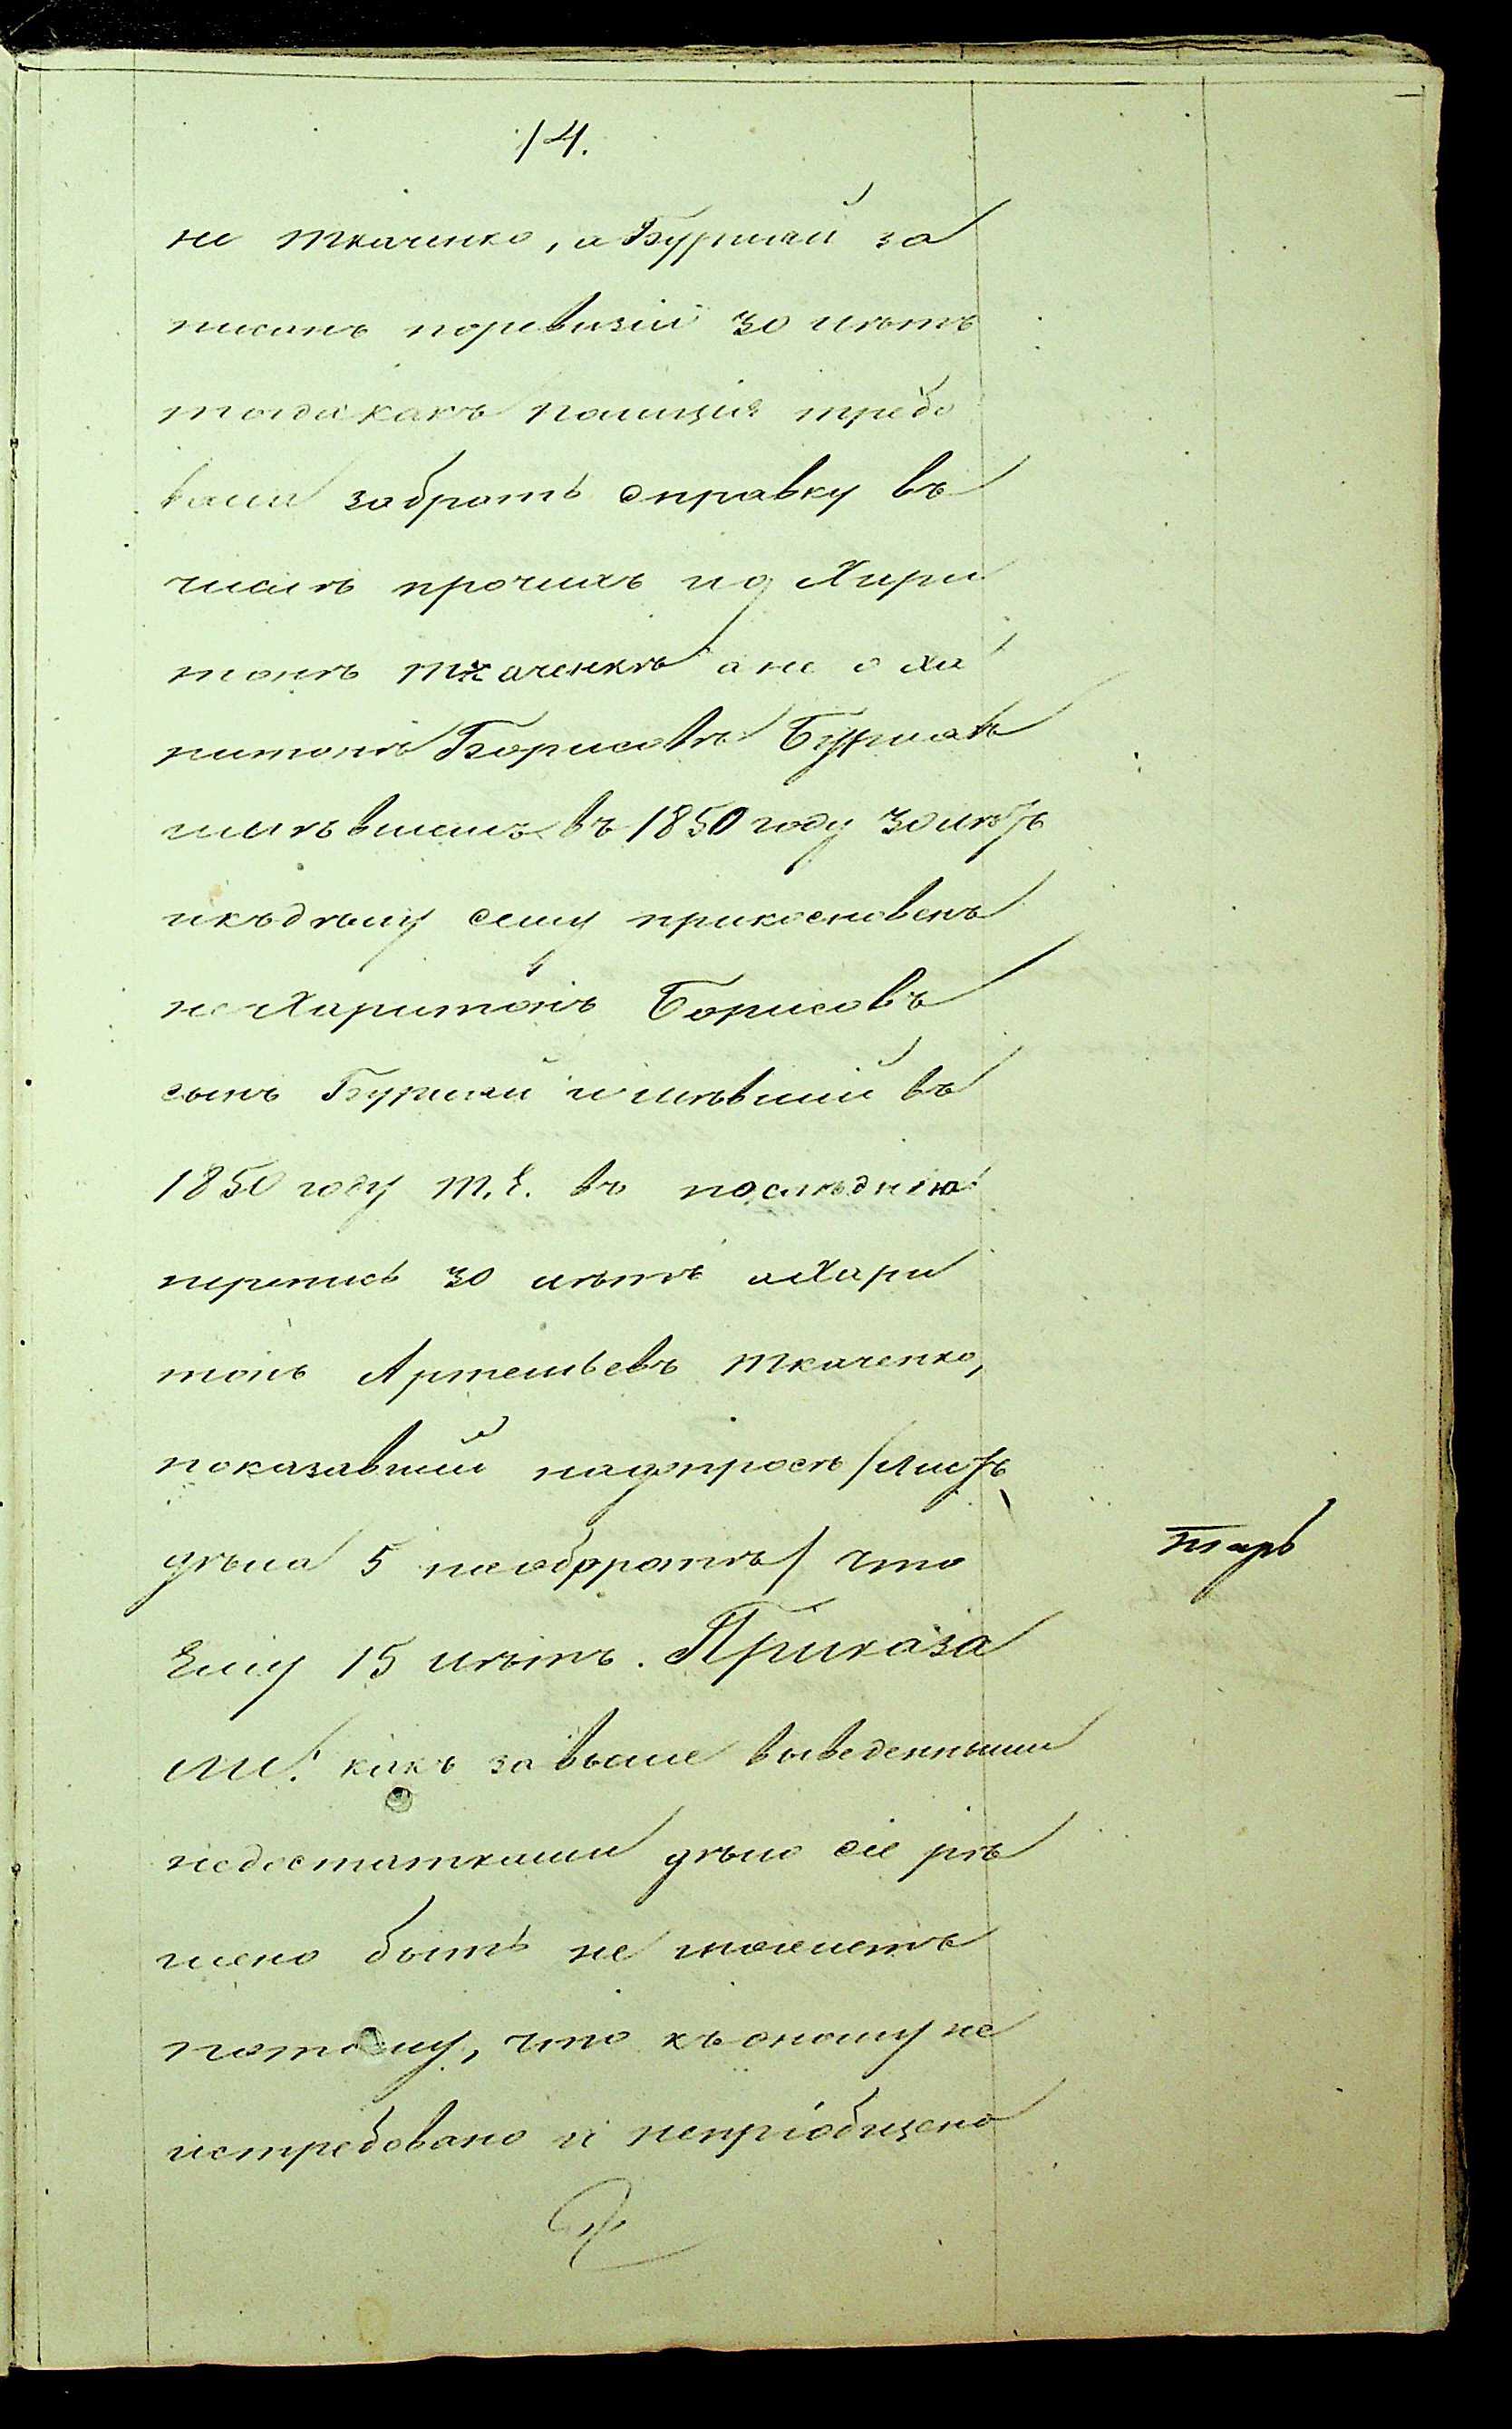 14.
не Ткаченко, а Бурлай за
писанъ поревизіи 30 лѣтъ
тогда какъ полиція требо
вали забрать справку въ
числѣ прочихъ и о Хари
тонѣ Ткаченкѣ а не о Ха
ритонѣ Борисовѣ Бурлаѣ
имѣвшемъ въ 1850 году 30 лѣтъ
икъдѣлу сему прикосновенъ
не Харитонъ Борисовъ
сынъ Бурлай имѣвшій въ
1850 году т. е. въ послѣднію
перепись 30 лѣтъ а Хари
тонъ Артемьевъ Ткаченко,
показавшій надопросѣ /листъ
дѣла 5 наоборотѣ/ что
Ему 15 лѣтъ. Приказа
ли: какъ завыше выведенными
недостатками дѣло сіе рѣ
шено быть не можетъ
потому, что къ оному не
истребовано и непріобщено